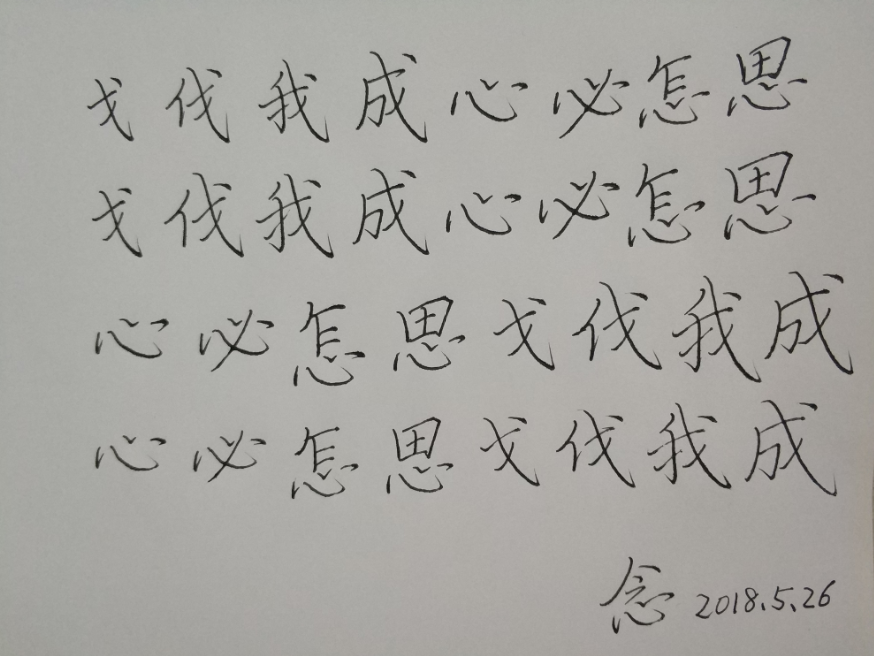 戈伐我成心必怎思
戈伐我成心必怎思
心必怎思戈伐我成
心必怎思戈伐我成
念 2018.5.26